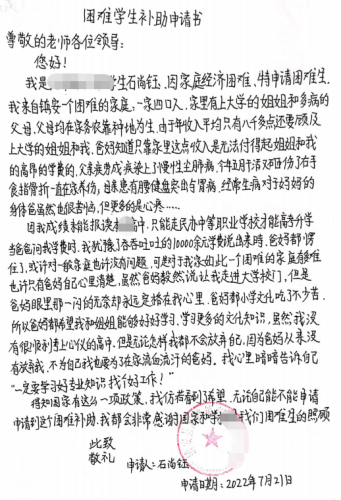 困难学生补助申请书
尊敬的老师各位领导:
您好!
我是 学生石尚钰,因家庭经济困难,特申请困难生。
我来自镇安一个困难的家庭,一家四口人,家里有上大学的姐姐和多病的
父,母,父母均在家务农靠种地为生,由于年收入平均只有八千多点还要顾及
上大学的姐姐和我,爸妈知道只靠家里这点收入是无法付得起姐姐和我
的高昂的学费的,父亲疾劳成疾染上了慢性尘肺病,今年五月干活又砸伤了右手
食指骨折一直在家养伤,母亲患有腰健盘突出与胃病,经常生病对于妈妈的
身体爸虽然也很害怕,但更多的是心寒……
因我成绩未能报读 高中,只能走民办中等职业学校才能高考升学
当爸爸问我学费时,我犹豫了吞吞吐吐的10000余元学费说出来时,爸妈都愣
住了,或许对一般家庭也许没有问题,可是对于我家如此一个困难的家庭有多难
也许只有爸妈自己心里清楚,虽然爸妈毅然说让我走进大学校门,但是
爸妈眼里那一闪的无奈却永远烙在我心里,爸妈都小学文化吃了不少苦,
所以爸妈都希望我和姐姐能够好好学习,学习更多的文化知识,虽然我没
有很顺利考上心仪的高中,但是无论怎样我都不会放弃的,因为爸妈从来没
有放弃我,不为自己我也要为了在家流血流汗的爸妈。我心里暗暗告诉自己
“一定要学习好专业知识 找个好工作!”
得知国家有这么一项政策,我仿若看到了希望,无论自己能不能申请
申请到这个困难补助,我都会非常感谢国家和学 我们困难生的照顾
此致
敬礼
申请人:石尚钰
申请日期:2022年7月21日